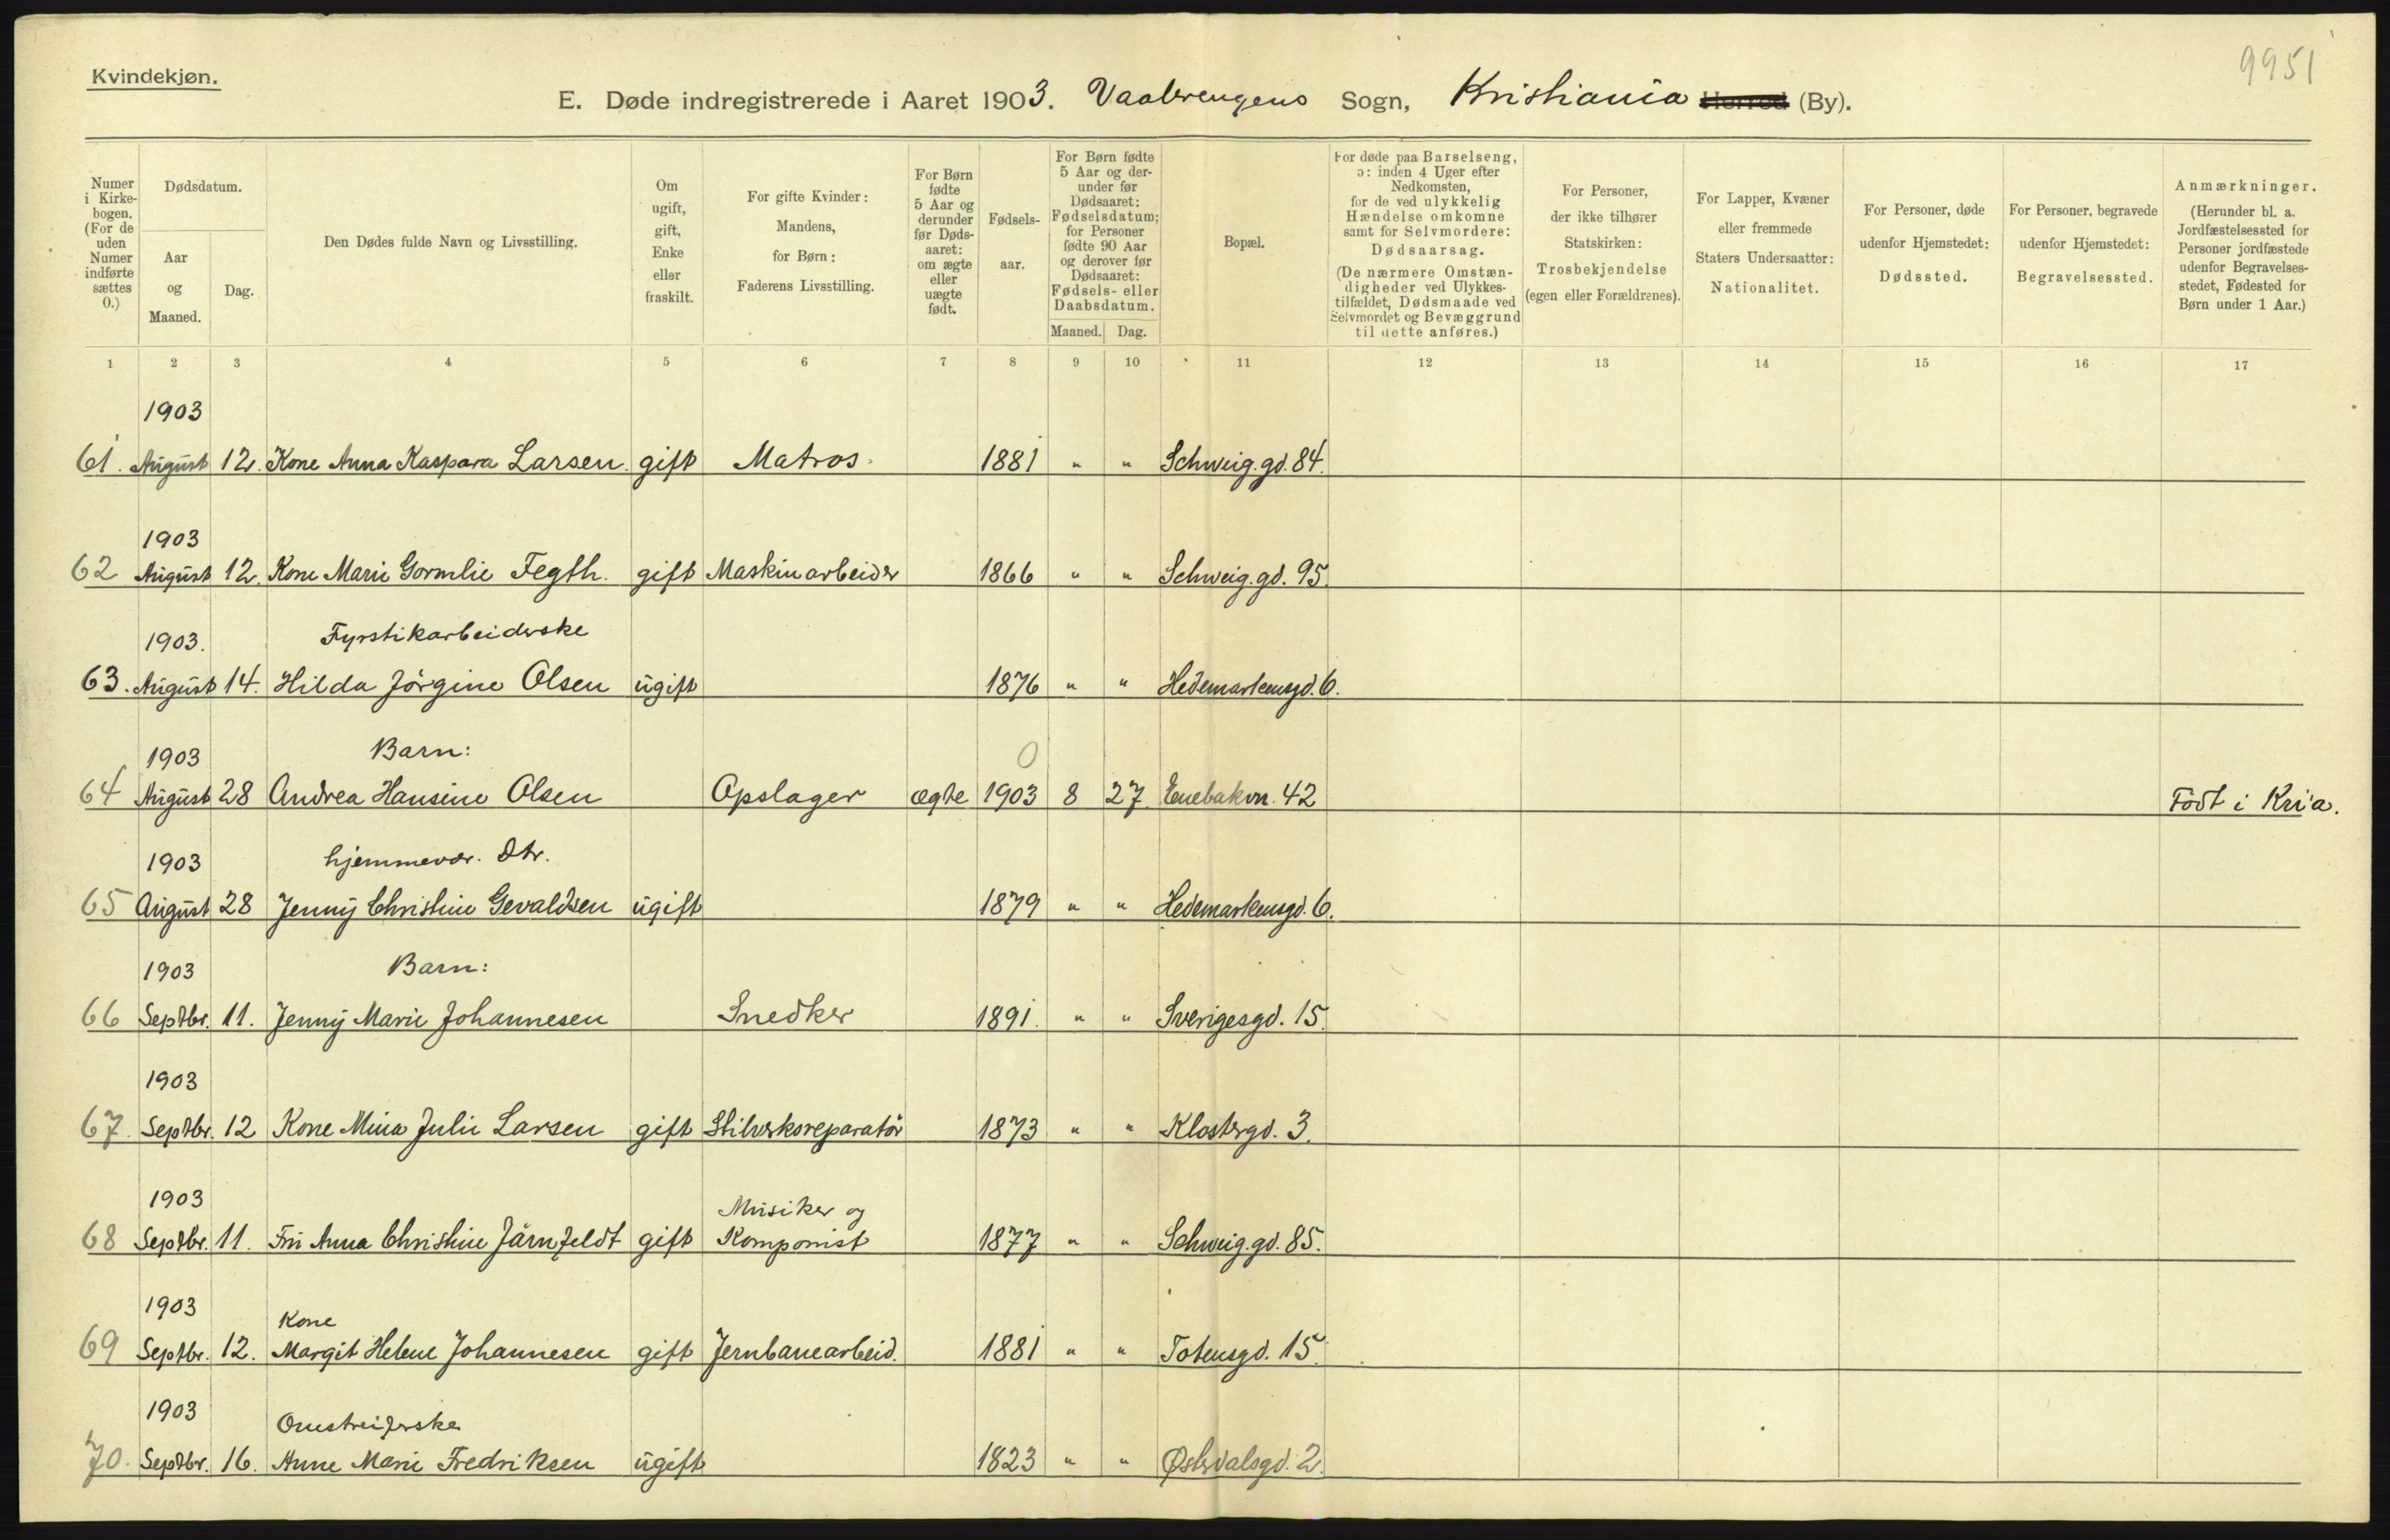 9951
Kvindekjøn.
E. Døde indregistrerede i Aaret 1903. Vaalerengens Sogn, Kristiania Herred (By).
Numer i Kirkebogen. (For de uden Numer indførte sættes 0.)
Dødsdatum.
Aar og Maaned.
Dag.
Den Dødes fulde Navn og Livsstilling.
Om ugift, gift, Enke eller fraskilt.
For gifte Kvinder: Mandens, for Børn: Faderens Livsstilling.
For Børn fødte 5 Aar og derunder før Dødsaaret: om ægte eller uægte født.
Fødselsaar.
For Børn fødte 5 Aar og derunder før Dødsaaret: Fødselsdatum; for Personer fødte 90 Aar og derover før Dødsaaret: Fødsels- eller Daabsdatum.
Maaned. Dag.
Bopæl.
For døde paa Barselseng, ɔ: inden 4 Uger efter Nedkomsten, for de ved ulykkelig Hændelse omkomne samt for Selvmordere: Dødsaarsag. (De nærmere Omstændigheder ved Ulykkestilfældet, Dødsmaade ved Selvmordet og Bevæggrund til dette anføres.)
For Personer, der ikke tilhører Statskirken: Trosbekjendelse (egen eller Forældrenes).
For Lapper, Kvæner eller fremmede Staters Undersaatter: Nationalitet.
For Personer, døde udenfor Hjemstedet: Dødssted.
For Personer, begravede udenfor Hjemstedet: Begravelsessted.
Anmærkninger. (Herunder bl. a. Jordfæstelsessted for Personer jordfæstede udenfor Begravelsesstedet, Fødested for Børn under 1 Aar.)
1 2 3 4 5 6 7 8 9 10 11 12 13 14 15 16 17
1903
61. August 12. Kone Anna Kaspara Larsen. gift Matros. 1881 " " Schweig.gd. 84.
1903
62 August 12. Kone Marie Gormlie Fegth. gift Maskinarbeider 1866 " " Schweig.gd. 95.
1903. Fyrstikarbeiderske
63. August 14. Hilda Jörgine Olsen ugift 1876 " " Hedemarkensgd. 6.
1903 Barn: 0
64 August 28 Andrea Hansine Olsen Opslager ægte 1903 8 27 Enebakvn. 42 Födt i Kr.i'a.
1903 hjemmevær. Dtr.
65 August 28 Jenny Christine Gevaldsen ugift 1879 " " Hedemarkensgd. 6.
1903 Barn:
66 Septbr. 11. Jenny Marie Johannesen Snedker 1891. " " Sverigesgd. 15.
1903
67. Septbr. 12 Kone Mina Julie Larsen gift 1873 " " Klostergd. 3.
1903 Musiker og
68 Septbr. 11. Fru Anna Christine Järnfeldt gift Komponist 1877 " " Schweig.gd. 85.
1903 Kone
69 Septbr. 12. Margit Helene Johannesen gift Jernbanearbeid. 1881 " " Totensgd. 15.
1903 Omstreiferske
70. Septbr. 16. Anne Marie Fredriksen ugift 1823 " " Østerdalsgd. 2.